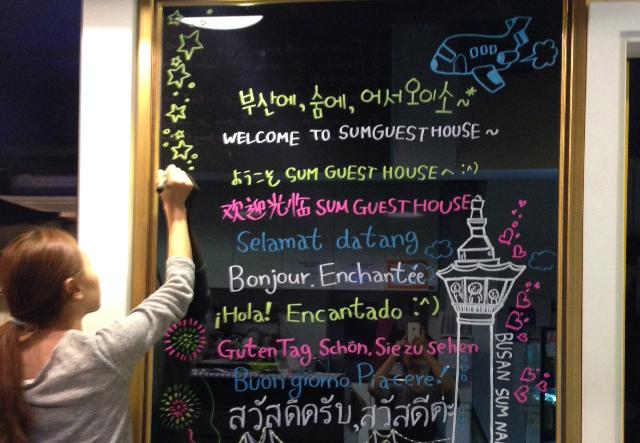 부산에, 숨에, 어서오이소~*
WELCOME TO SUMGUESTHOUSE ~
ようこそ SUM GUEST HOUSE~ :^)
欢迎光临 SUM GUEST HOUSE
Selamat datang
Bonjour. Enchantée
¡Hola! Encantado :^)
Guten Tag. Schön, Sie zu sehen
Buon giorno Piacere!
สวัสดีครับ, สวัสดีค่ะ
BUSAN SUM NA